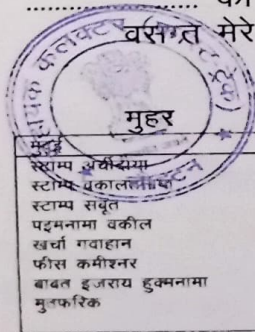 ................... का
वसंत मेरे
मुहर
मुद्दई
स्टाम्प अर्जीदावा
स्टाम्प वकालतनामा
स्टाम्प सबूत
पइमनामा वकील
खर्चा गवाहान
फीस कमीश्नर
बाबत इजराय हुक्मनामा
मुतफरिक